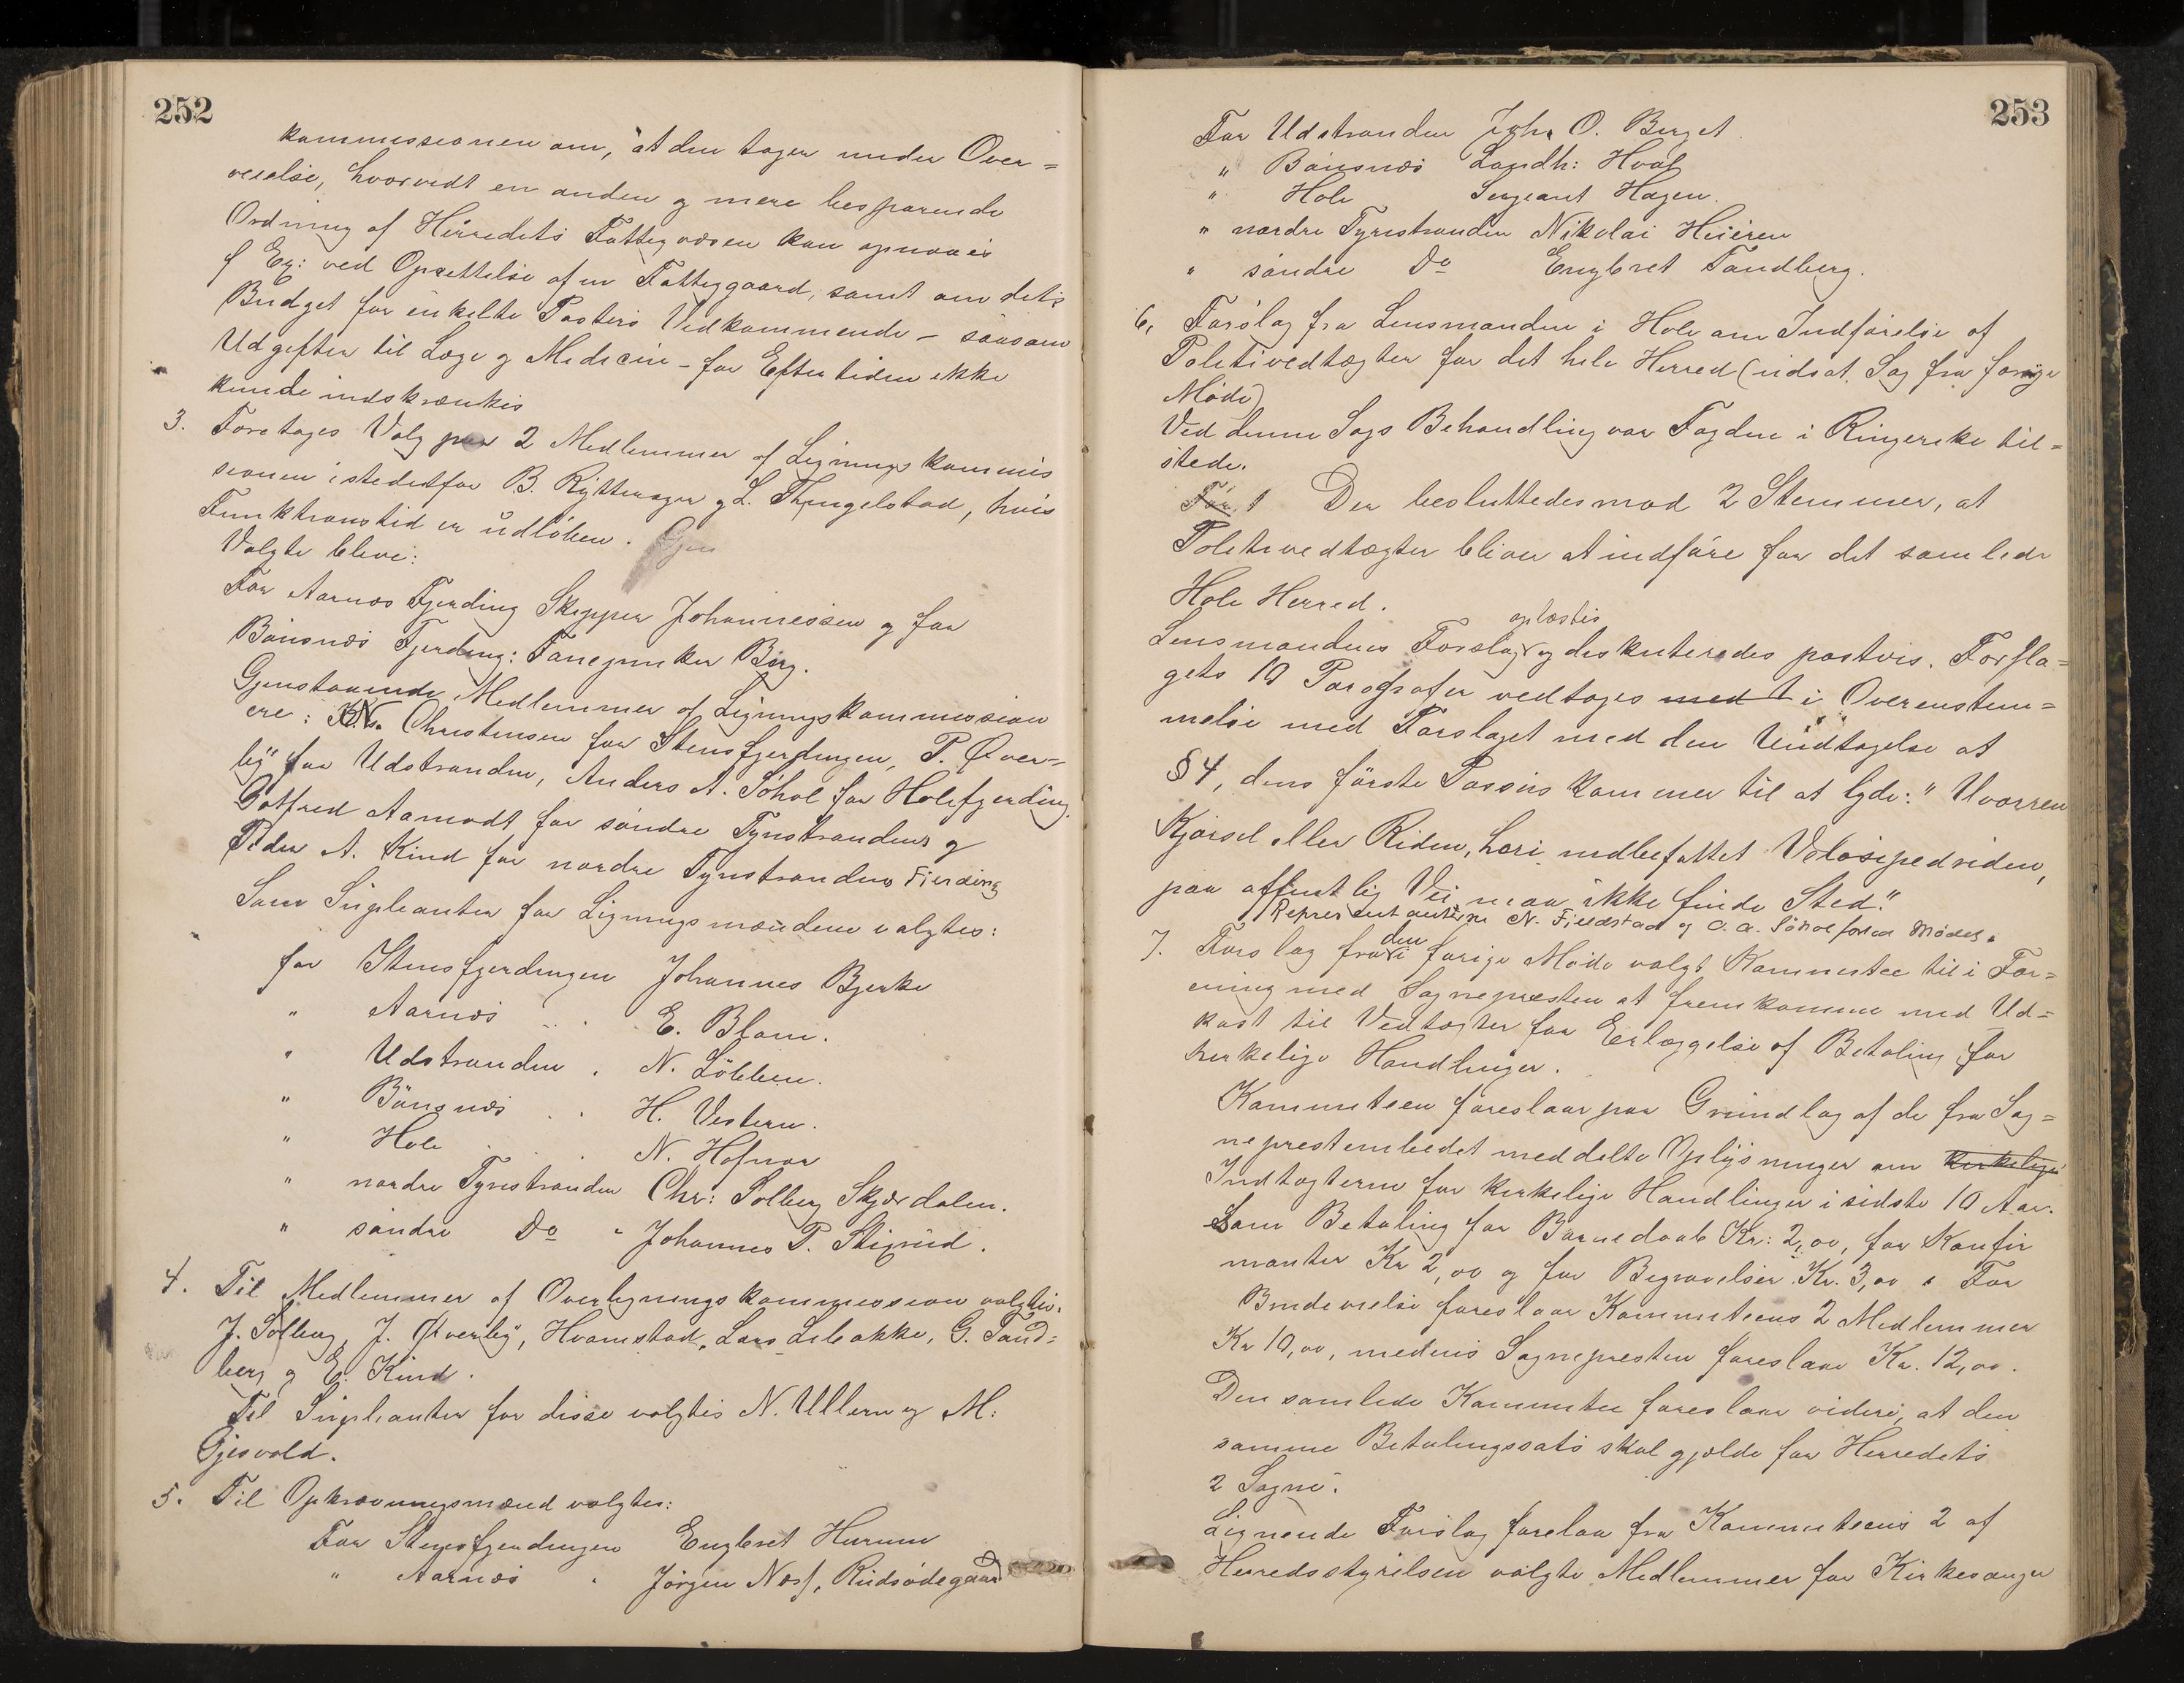 252
kommissionen om, at den tager under Over=
veielse, hvorvidt en anden og mere besparende
Ordning af Herredets Fattigvæsen kan opnaaes
f Ex: ved Oprettelse af en Fattiggaard, samt om dets
Budget for enkelte Posters Vedkommende – saasom
Udgifter til Læge og Medicin – for Eftertiden ikke
kunde indskrænkes
3. Foretages Valg paa 2 Medlemmer af Ligningskommis
sionen istedetfor B. Rytterager og L. Thingelstad, hvis
Funktionstid er udløben.
Valgte bleve:
For Aarnæs Fjerding Skipper Johannessen og for
Bönsnæs Fjerding: Fanejunker Berg.
Gjenstaaende Medlemmer af Ligningskommission
ere: Christensen for Stensfjerdingen, P. Øver=
by for Udstranden, Anders A. Söhol for Holefjerding
Gotfred Aamodt for söndre Tyristrandens og
Peder A. Kind for nordre Tyristrandens Fjerding
Som Supleanter for Ligningsmændene valgtes:
for Stensfjerdingen Johannes Bjerke
" Aarnæs . . E. Blom.
" Udstranden . N. Løkken.
" Bönsnæs . . H. Vestern.
" Hole . . N. Hofnor
" nordre Tyristranden Chr: Solberg Skjærdalen.
" söndre Do " Johannes P. Stigrud.
4. Til Medlemmer af Overligningskommission valgtes.
J. Solberg, J. Øverby, Hvamstad, Lars Libakke, G. Tand=
berg og E. Kind.
Til Supleanter for disse valgtes N. Ullern og M.
Gjesvold.
5. Til Opkrævningsmænd valgtes:
For Stensfjerdingen Engbret Hurum
" Aarnæs . Jörgen Næs, Rudsödegaard
253
For Udstranden Johs O. Berget.
" Bönsnæs Landh: Hval
" Hole Sergeant Hagen.
" nordre Tyristranden Nikolai Heieren
" söndre Do Engbret Tandberg.
6. Forslag fra Lensmanden i Hole om Indförelse af
Politivedtægter for det hele Herred (udsat Sag fra forrige
Möde)
Ved denne Sags Behandling var Fogden i Ringerike til=
stede.
Der besluttedes mod 2 Stemmer, at
Politivedtægter bliver at indföre for det samlede
Hole Herred.
oplæstes
Lensmandens Forslag og diskuteredes postvis. Forsla=
gets 10 Paragrafer vedtages med 1 i Overenstem=
melse med Forslaget med den Undtagelse at
§ 4, dens förste Passus kommer til at lyde: "Uvorren
Kjörsel eller Riden, heri indbefattet Velosipedriden,
paa offentlig Vei maa ikke finde Sted."
Representanterne N. Fjeldstad og O. A. Söhol forlod Mödet.
7. Forslag fra den i forige Möde valgt Kommitee til i For=
ening med Sognepresten at fremkomme med Ud=
kast til Vedtægter for Erlæggelse af Betaling for
kirkelige Handlinger.
Kommiteen foreslaar paa Grundlag af de fra Sog=
neprestembedet meddelte Oplysninger om kirkelige
Indtægterne for kirkelige Handlinger i sidste 10 Aar.
Som Betaling for Barnedaab Kr: 2,00, for Konfir
manter Kr 2,00 og for Begravelser Kr. 3,00. For
Brudevielse foreslaar Kommiteens 2 Medlemmer
Kr 10,00, medens Sognepresten foreslaar Kr. 12,00.
Den samlede Kommitee foreslaar videre, at den
samme Betalingssats skal gjælde for Herredets
2 Sogne.
Lignende Forslag forelaa fra Kommiteens 2 af
Herredsstyrelsen valgte Medlemmer for Kirkesanger